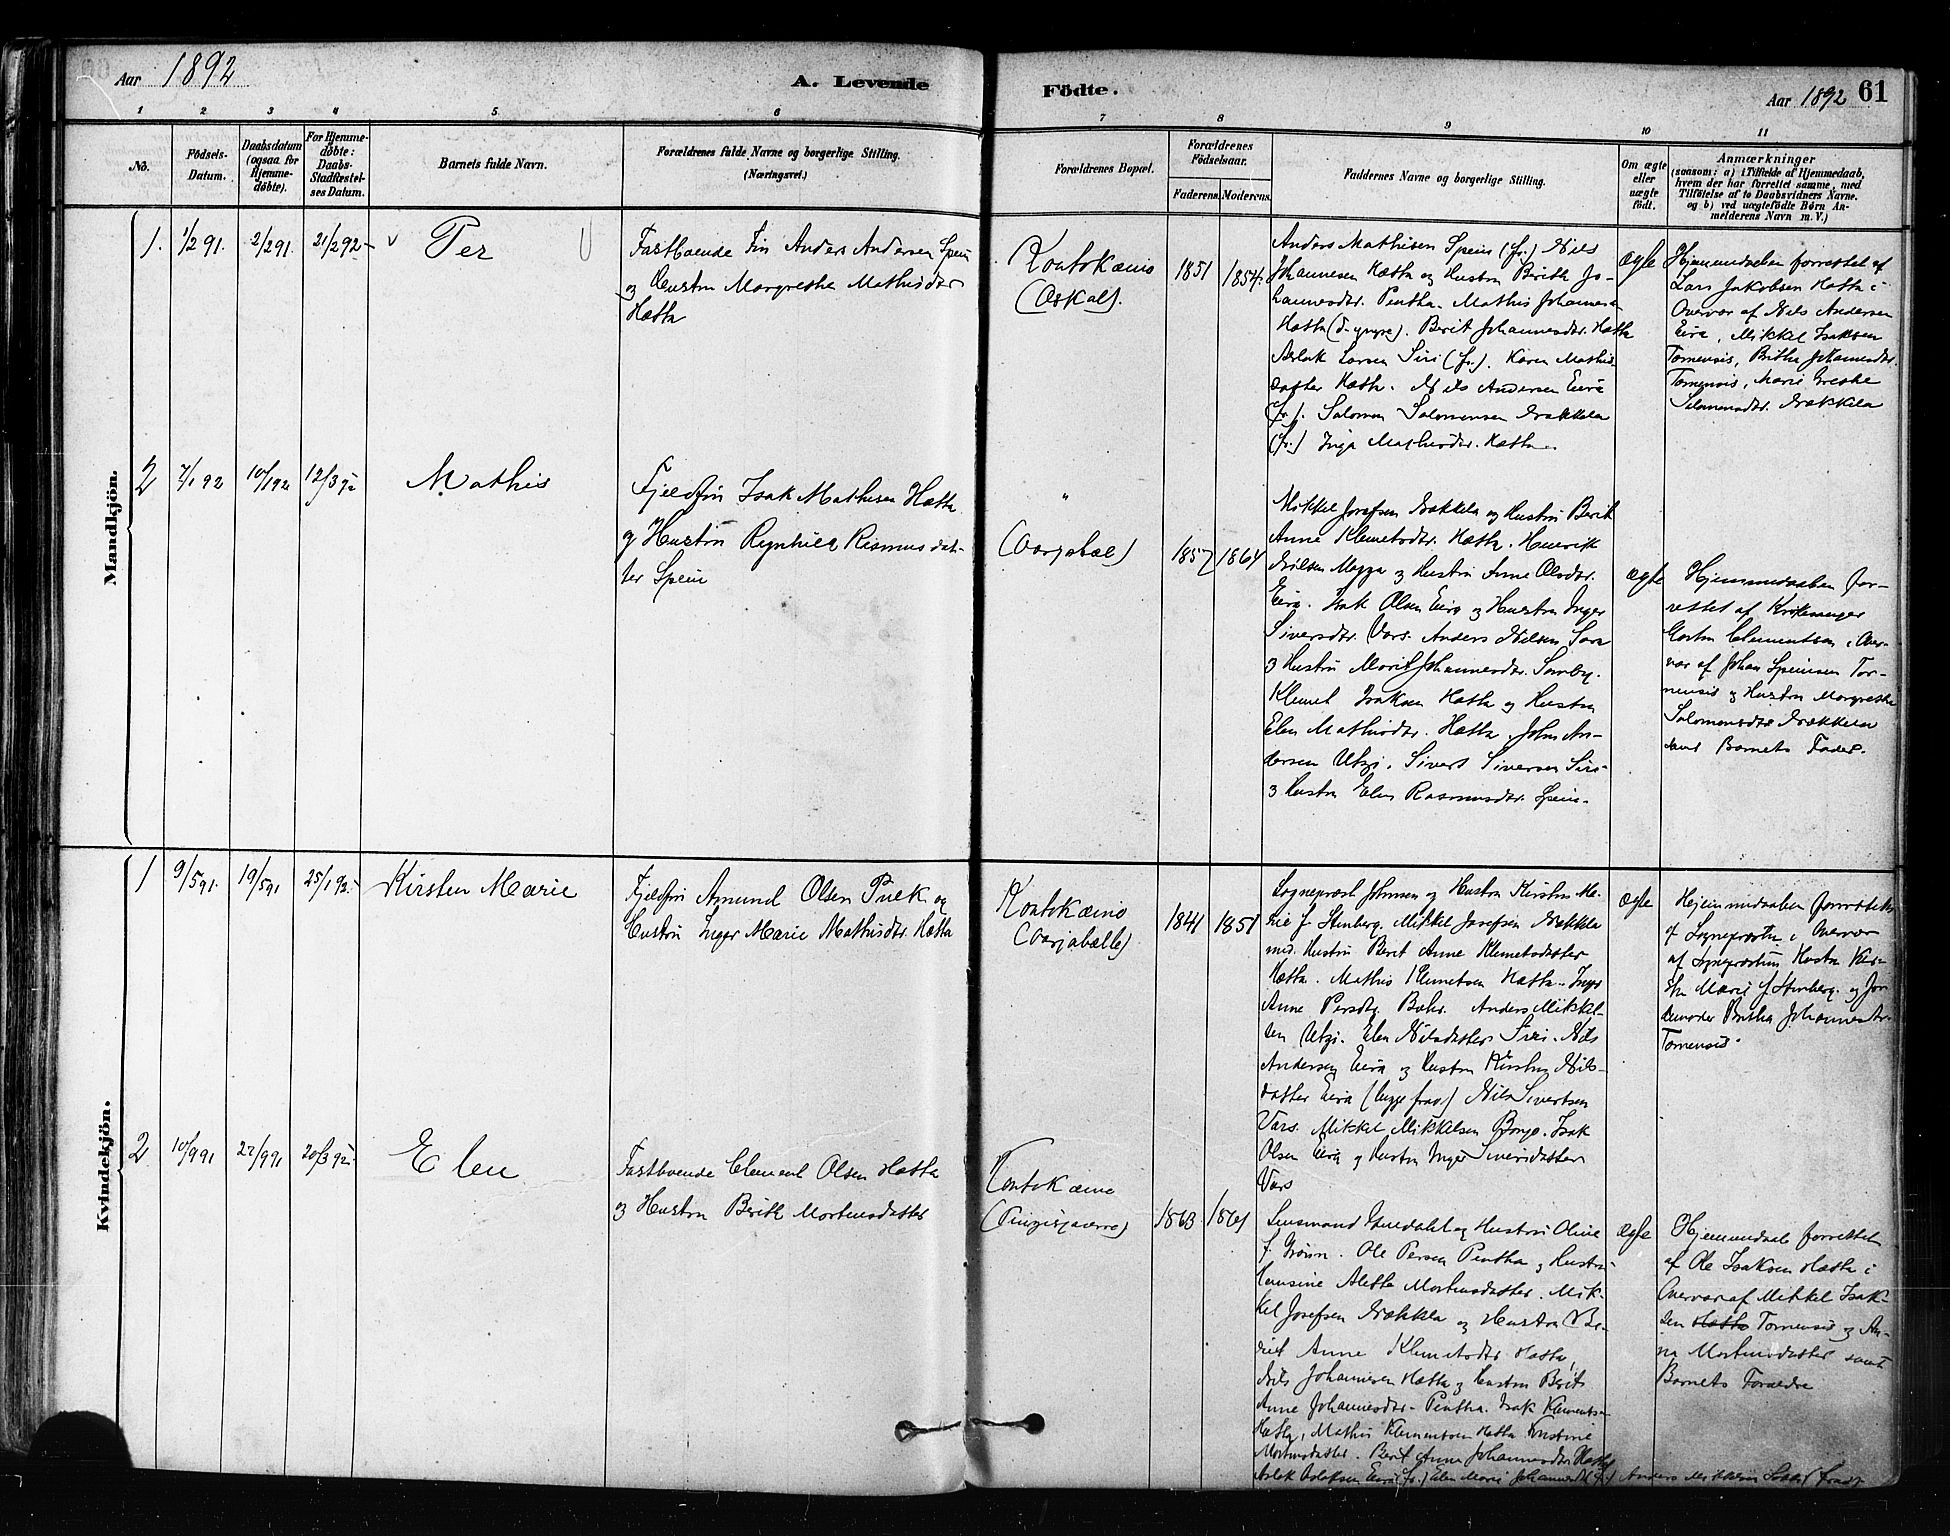 Aar 1892
A. Levende
Födte.
Aar 1892 61
1 2 3 4 5. 6 7 8 9 10 11
No.
Födsels-
Datum.
Daabsdatum
(ogsaa for
Hjemme-
döbte).
For Hjemme-
döbte:
Daabs-
Stadfæstel-
ses Datum.
Barnets fulde Navn.
Forældrenes fulde Navne og borgerlige Stilling.
(Næringsvei.)
Forældrenes Bopæl.
Forældrenes
Födselsaar.
Faderens. Moderens.
Faddernes Navne og borgerlige Stilling.
Om ægte
eller
uægte
födt.
Anmærkninger
(saasom: a) i Tilfælde af Hjemmedaab,
hvem der har forrettet samme, med
Tilföielse af to Daabsvidners Navne.
og b) ved uægtefödte Børn An-
melderens Navn m. V.)
Mandkjön.
1. 1/2 91. 2/2 91. 21/2 92
Per
Fastboende Fin Anders Andersen Spein
og Hustru Margrethe Mathisdtr
Hætta
Kautokæino
(Askal).
1851 1854.
Anders Mathisen Spein (fr.) Nils
Johannesen Hætta og Hustru Berith Jo-
hannesdtr. Pentha. Mathis Johannes
Hætta (d. yngre). Berit Johannesdtr. Hætta
Aslak Larsen Siri (fr.). Karen Mathis
datter Hætta. Nils Andersen Eira
(fr.). Salomon Salomonsen Nækkela
(fr.) Inga Mathisdtr. Hætta.
ægte
Hjemmedaaben forrettet af
Lars Jakobsen Hætta i
Overvær af Nils Andersen
Eira, Mikkel Isaksen
Tornensis, Britha Johannesdtr.
Tornensis, Marie Grethe
Salomonsdtr. Nækkela
2 7/1 92 10/1 92 12/3 92
Mathis
Fjeldfin Isak Mathisen Hætta
og Hustru Regnhild Rasmusdat-
ter Spein
"
(Oarjabæl)
1857 1864
Mikkel Josefsen Nækkela og Hustru Berit
Anne Klemetsdtr. Hætta. Henrik
Nilsen Magga og Hustru Anne Olsdtr.
Eira. Isak Olsen Eira og Hustru Inger
Siversdtr. Vars. Anders Nilsen Sara
og Hustru Marit Johannesdtr. Somby.
Klemet Isaksen Hætta og Hustru
Elen Mathisdtr. Hætta. John An-
dersen Utzi. Sivert Siversen Siri
og Hustru Elen Rasmusdtr. Spein.
ægte
Hjemmedaaben for-
rettet af Kirkesanger
Clementsen i Over-
vær af Johan Speinsen Tor-
nensis og Hustru Margrethe
Salomonsdtr Nækkela
samt Barnets Fader.
Kvindekjön.
1 9/5 91. 19/5 91 25/1 92.
Kirsten Marie
Fjeldfin Amund Olsen Puek og
Hustru Inger Marie Mathisdtr. Hætta
Kautokæino
(Oarjabælle)
1841 1851
Sogneprest Johnsen og Hustru Kirsten Ma-
rie f. Stenberg. Mikkel Josefsen Nækkela
med Hustru Beret Anne Klemetsdatter
Hætta. Mathis Klemetsen Hætta. Inger
Anne Persdtr. Bæhr. Anders Mikkel-
sen Utzi. Elen Nilsdatter Siri. Nils
Andersen Eira og Hustru Kirsten Nils-
datter Eira (begge frav.) Nils Sivertsen
Vars. Mikkel Mikkelsen Bongo. Isak
Olsen Eira og Hustru Inger Siversdatter
Vars
ægte
Hjemmedaaben forrettet
af Sognepresten i Overvær
af Sogneprestens Hustru Kir-
sten Marie f. Stenberg. og Jor-
demoder Britha Johannesdtr.
Tornensis.
2 10/9 91 27/9 91 20/3 92.
Elen
Fastboende Clement Olsen Hætta
og Hustru Berith Mortensdatter
Kautokæino
(Pingisjaverre)
1863 1864
Lensmand og Hustru Oline
f. Ole Persen Pentha og Hustru
Hansine Alette Mortensdatter. Mik-
kel Josefsen Nækkela og Hustru Be-
ret Anne Klemetsdtr Hætta,
Nils Johannesen Hætta og Hustru Berit
Anne Johannesdtr. Pentha. Isak Klementsen
Hætta, Mathis Klementsen Hætta
Mortensdatter. Berit Anne Johannesdtr Hætta
Aslak Aslaksen Eira (fr.) Elen Marie Johannesdtr (fr.) Anders Mikkelsen
ægte
Hjemmedaab forrettet
af Ole Isaksen Hætta i
Overvær af Mikkel Isak-
sen Hætta Tornensis og An-
na Mortensdatter samt
Barnets Forældre